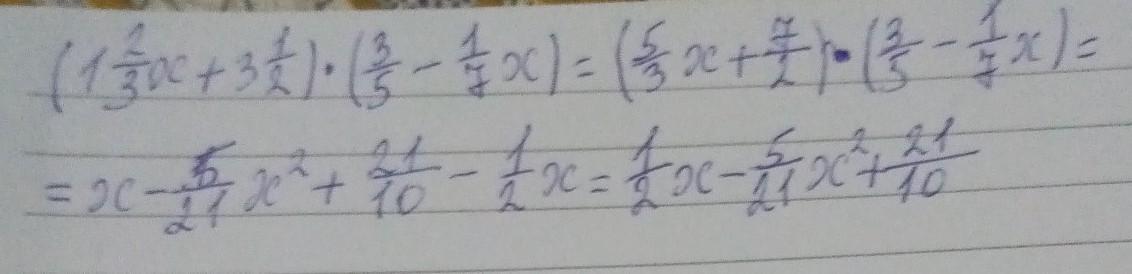 (1 2/3 x + 3 1/2) · (3/5 − 1/7 x) = (5/3 x + 7/2) · (3/5 − 1/7 x) =
= x − 5/21 x² + 21/10 − 1/2 x = 1/2 x − 5/21 x² + 21/10